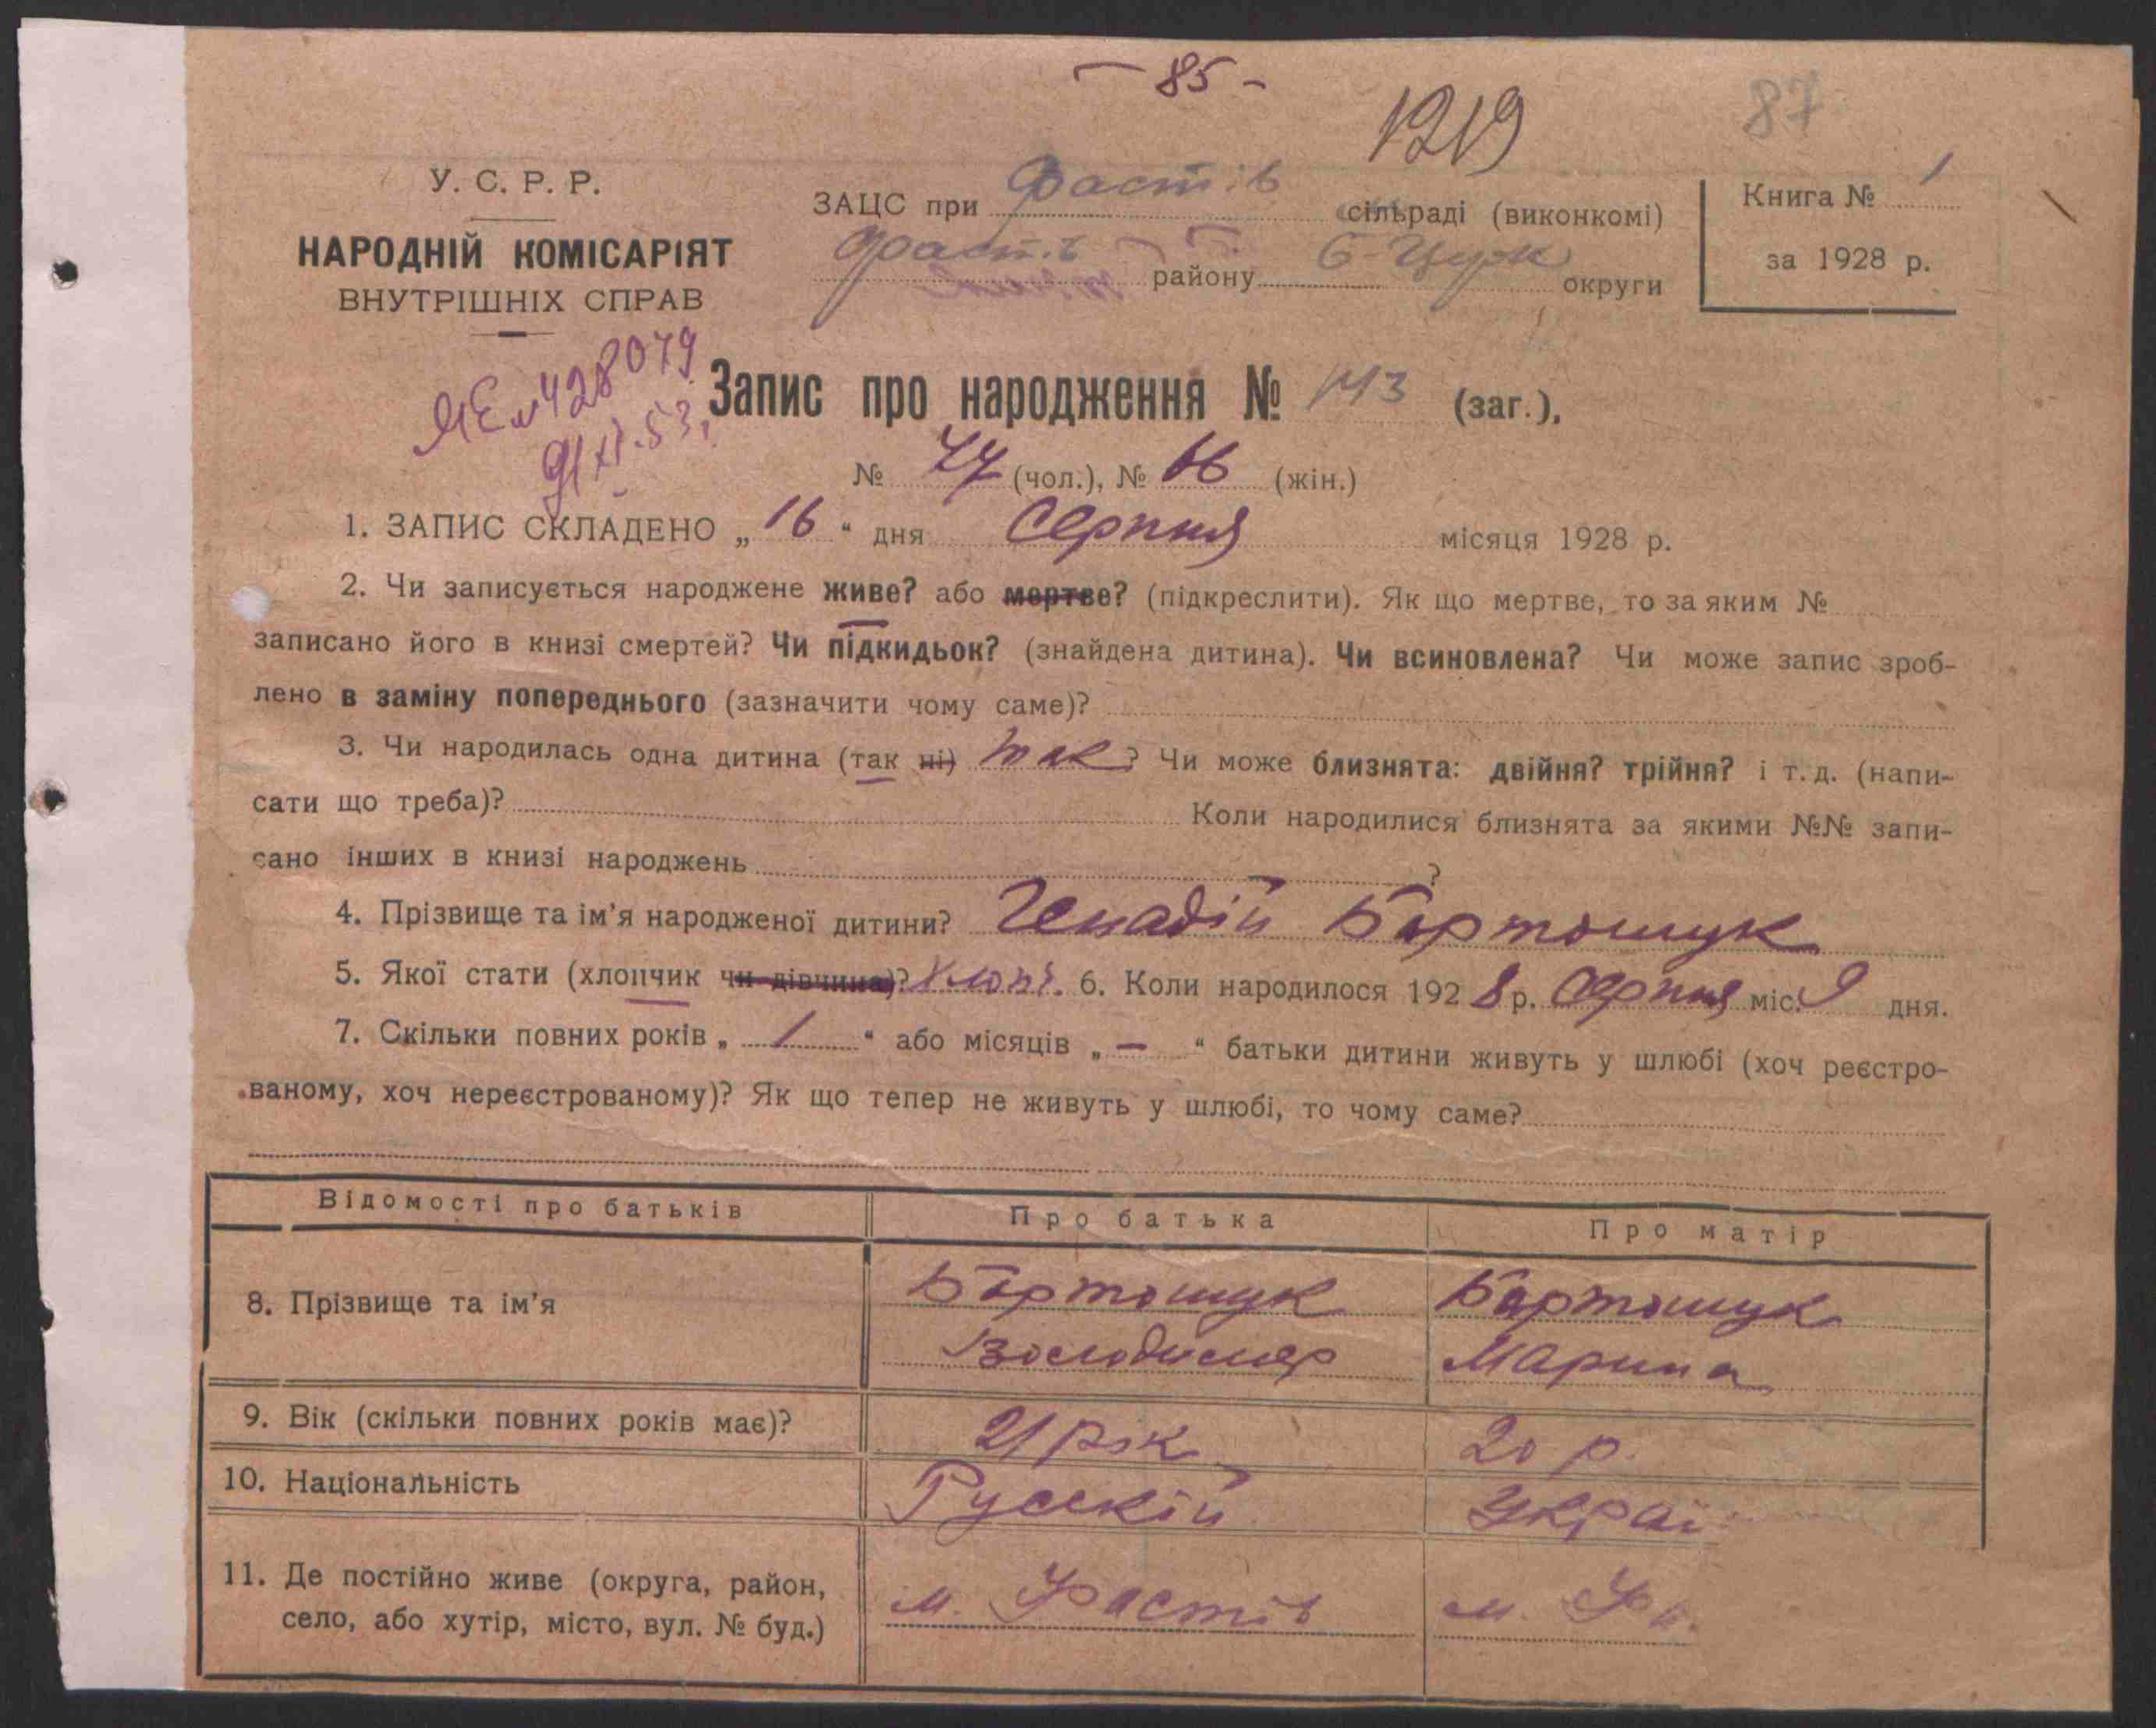 - 85 -
1219
87
У. С. Р. Р.
НАРОДНІЙ КОМІСАРІЯТ
ВНУТРІШНІХ СПРАВ
ЗАЦС при Фастів сільраді (виконкомі)
Фастів району Б-Церк округи
Книга № 1
за 1928 р.
428079
Запис про народження № 143 (заг.),
№ 77 (чол.), № 66 (жін.)
1. ЗАПИС СКЛАДЕНО „ 16 “ дня Серпня місяця 1928 р.
2. Чи записується народжене живе? або мертве? (підкреслити). Як що мертве, то за яким №
записано його в книзі смертей? Чи підкидьок? (знайдена дитина). Чи всиновлена? Чи може запис зроб-
лено в заміну попереднього (зазначити чому саме)?
3. Чи народилась одна дитина (так ні) так? Чи може близнята: двійня? трійня? і т. д. (напи-
сати що треба)? Коли народилися близнята за якими №№ запи-
сано інших в книзі народжень ?
4. Прізвище та ім’я народженої дитини? Генадій Бартошук
5. Якої стати (хлопчик чи дівчина)? хлопч. 6. Коли народилося 1928 р. Серпня міс. 9 дня.
7. Скільки повних років „ 1 “ або місяців „ — “ батьки дитини живуть у шлюбі (хоч реєстро-
ваному, хоч нереєстрованому)? Як що тепер не живуть у шлюбі, то чому саме?
Відомості про батьків Про батька Про матір
8. Прізвище та ім’я Бартошук Бартошук
Володимер Марина
9. Вік (скільки повних років має)? 21 рік 20 р.
10. Національність Русскій Украї
11. Де постійно живе (округа, район,
село, або хутір, місто, вул. № буд.) м. Фастів м.